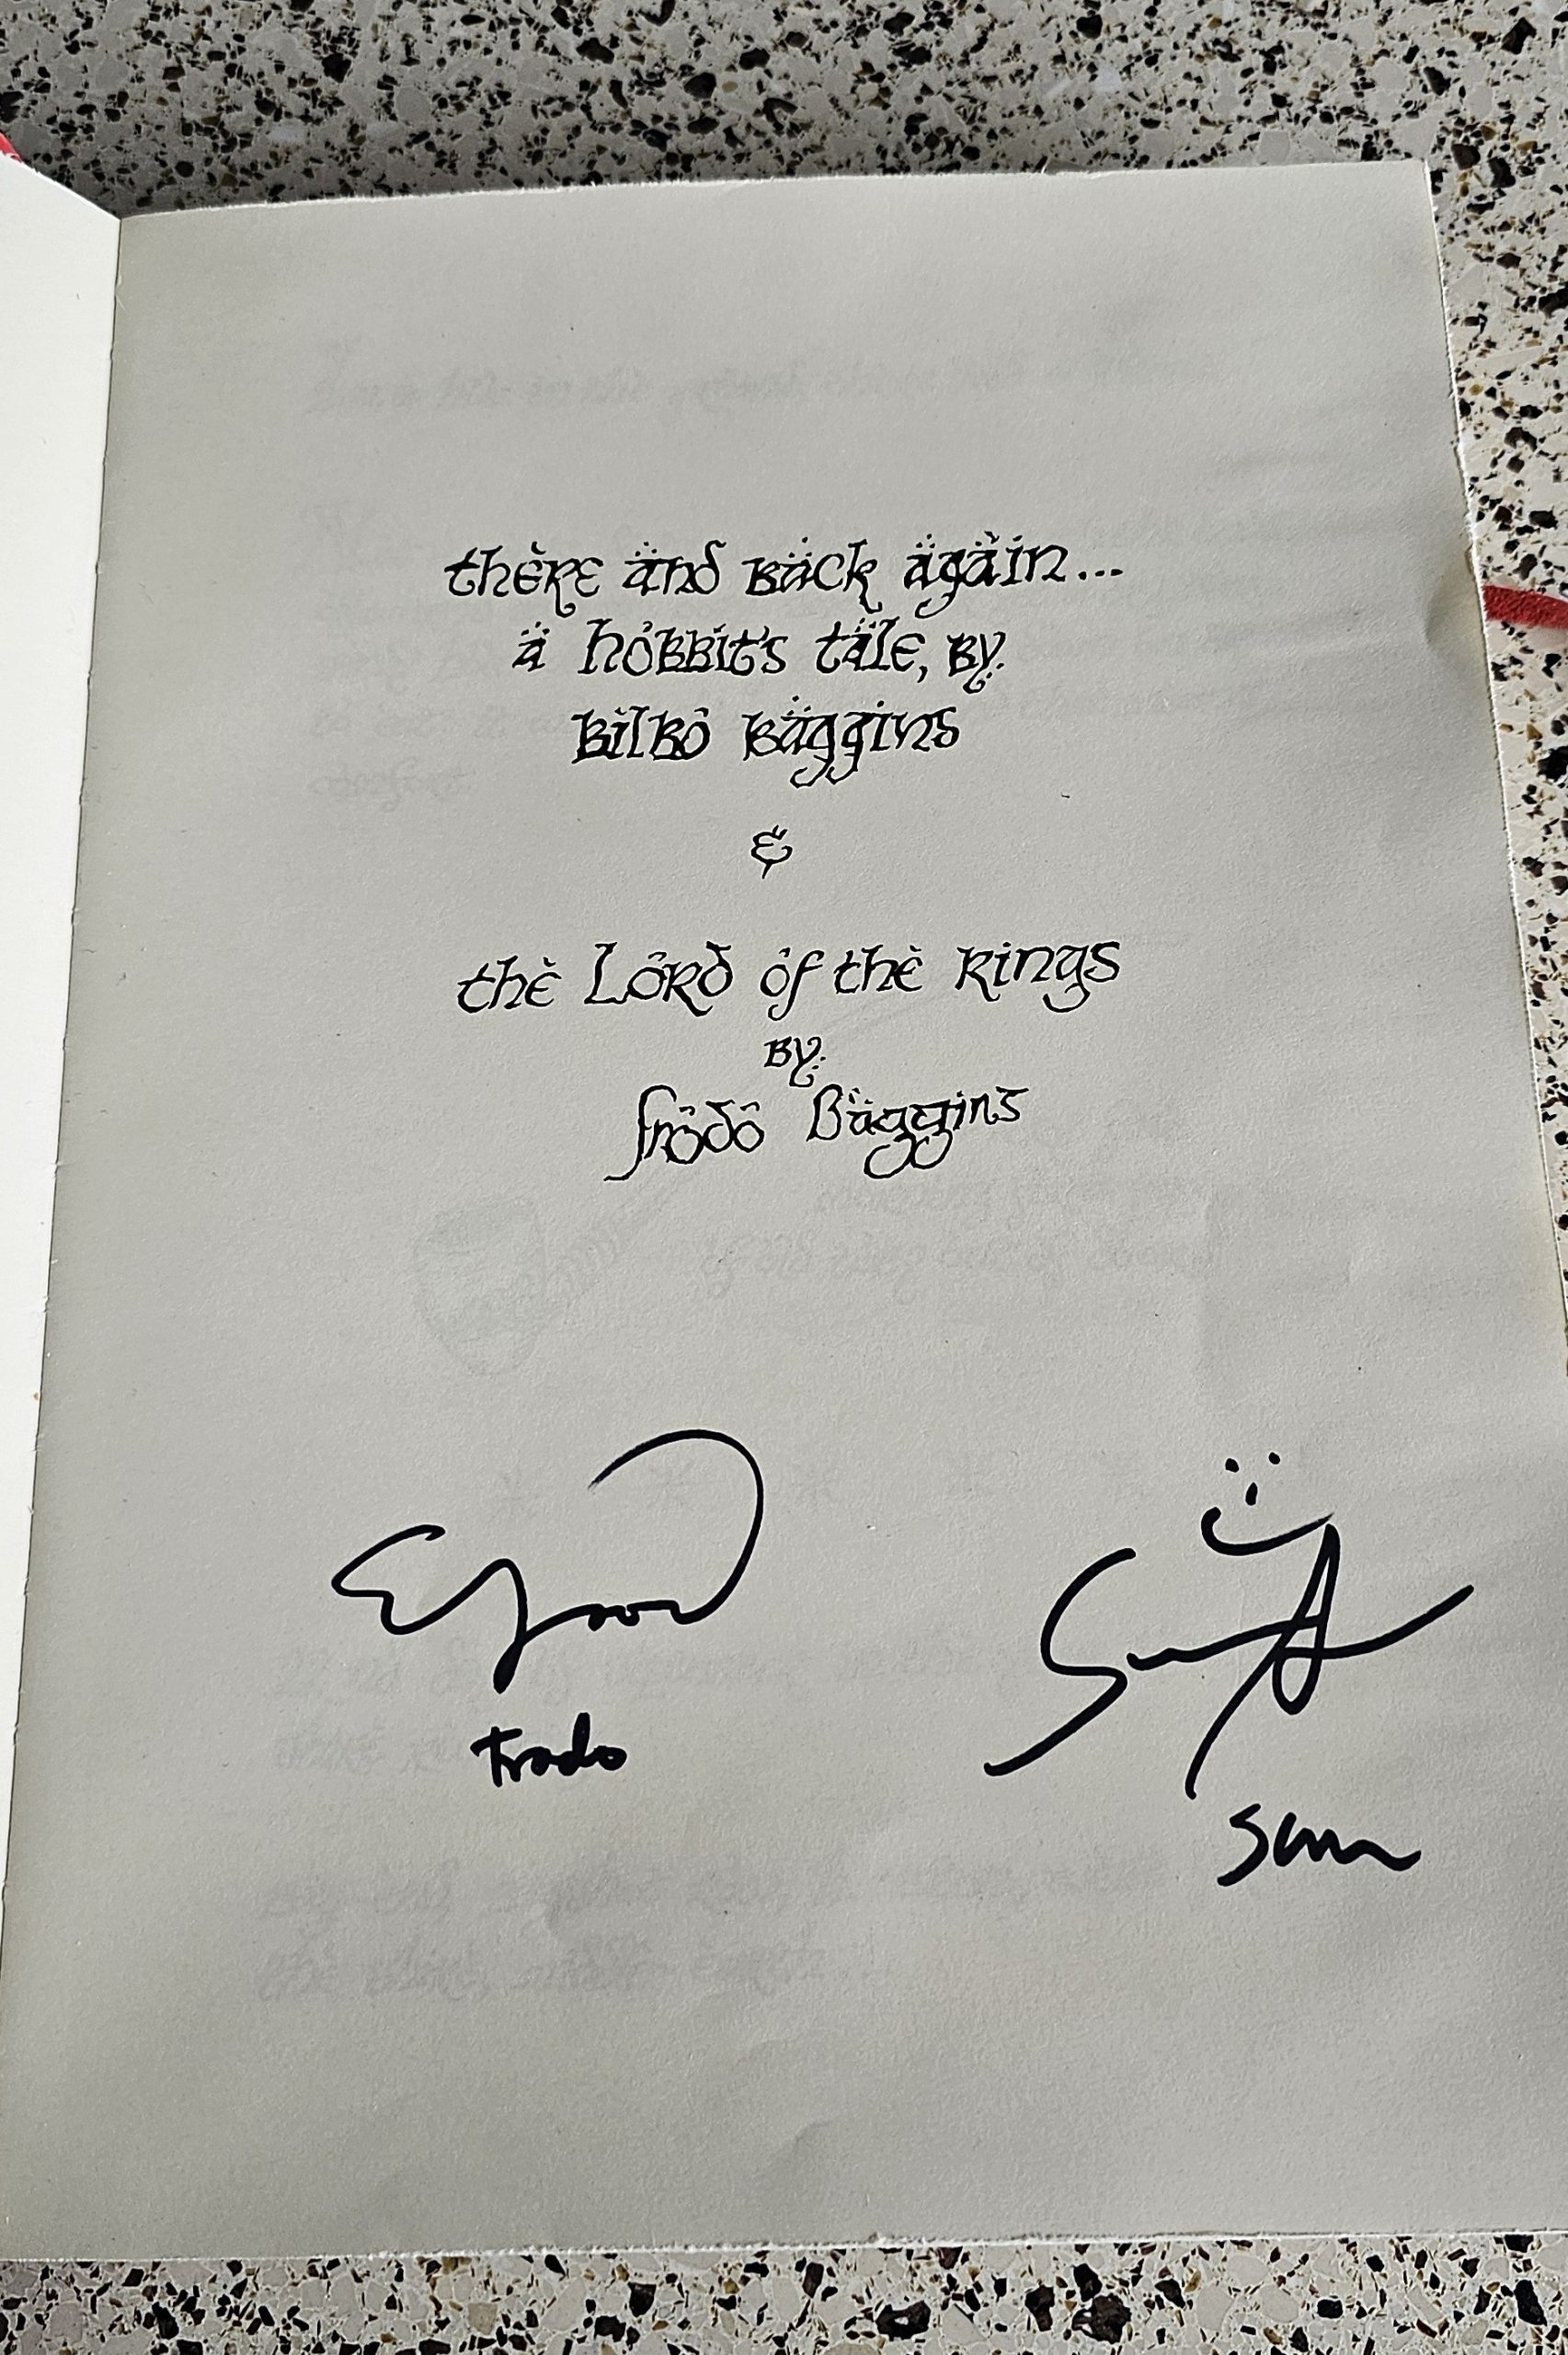 thère änd bäck ägäin...
ä hobbit's täle, by
Bilbo Bäggins
&
thè Lord of thè Rings
by
frodo Bäggins
Frodo
Sam